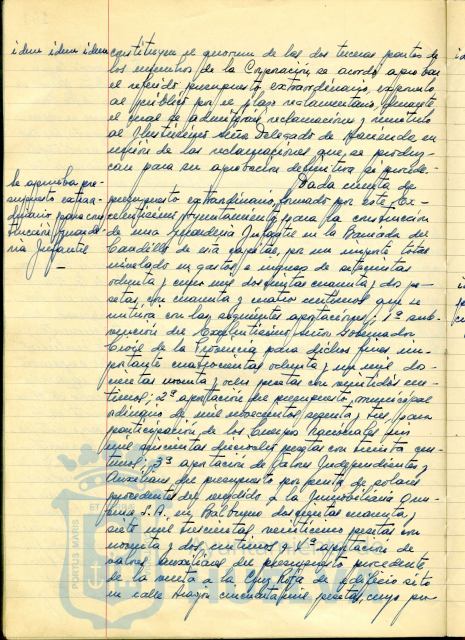 idem idem idem
constituyen el quorum de las dos terceras partes de
los miembros de la Corporación, se acordó aprobar
el referido presupuesto extraordinario, exponerlo
al público por el plazo reglamentario, durante
el cual se admitirán reclamaciones y remitirlo
al Ilustrísimo Señor Delegado de Hacienda en
unión de las reclamaciones que se produz-
can para su aprobación definitiva si procede.
Se aprueba pre-
supuesto extraor-
dinario para cons-
trucción guarde-
ría Infantil
Dada cuenta de
presupuesto extraordinario, formado por este Ex-
celentísimo Ayuntamiento para la construcción
de una Guardería Infantil en la Barriada del
Caudillo de esta capital, por un importe total
nivelado en gastos e ingresos de setecientas
ochenta y mil doscientas cuenta y dos pe-
setas, con cuenta y cuatro céntimos que se
nutrirá con las siguientes aportaciones; 1ª sub-
vención del Excelentísimo Señor Gobernador
Civil de la Provincia para dichos fines im-
portante cuatrocientas ochenta y un mil do-
cientas noventa y ocho pesetas con veintidós cén-
timos; 2ª aportación del presupuesto municipal
ordinario de mil novecientos sesenta y tres, para
participación de los Cuerpos Nacionales
mil pesetas con treinta cén-
timos; 3ª aportación de Valores Independientes y
Auxiliares del presupuesto por venta de solares
procedentes del vendido a la Inmobiliaria
S.A. en Balbueno doscientas cuenta y
siete mil trescientas veinticinco pesetas con
noventa y dos céntimos y 4ª aportación de
valores auxiliares del presupuesto procedente
de la venta a la Cruz Roja de edificio sito
en calle Aragón cincuenta mil pesetas, cuyo pre-
PORTUS MARIS